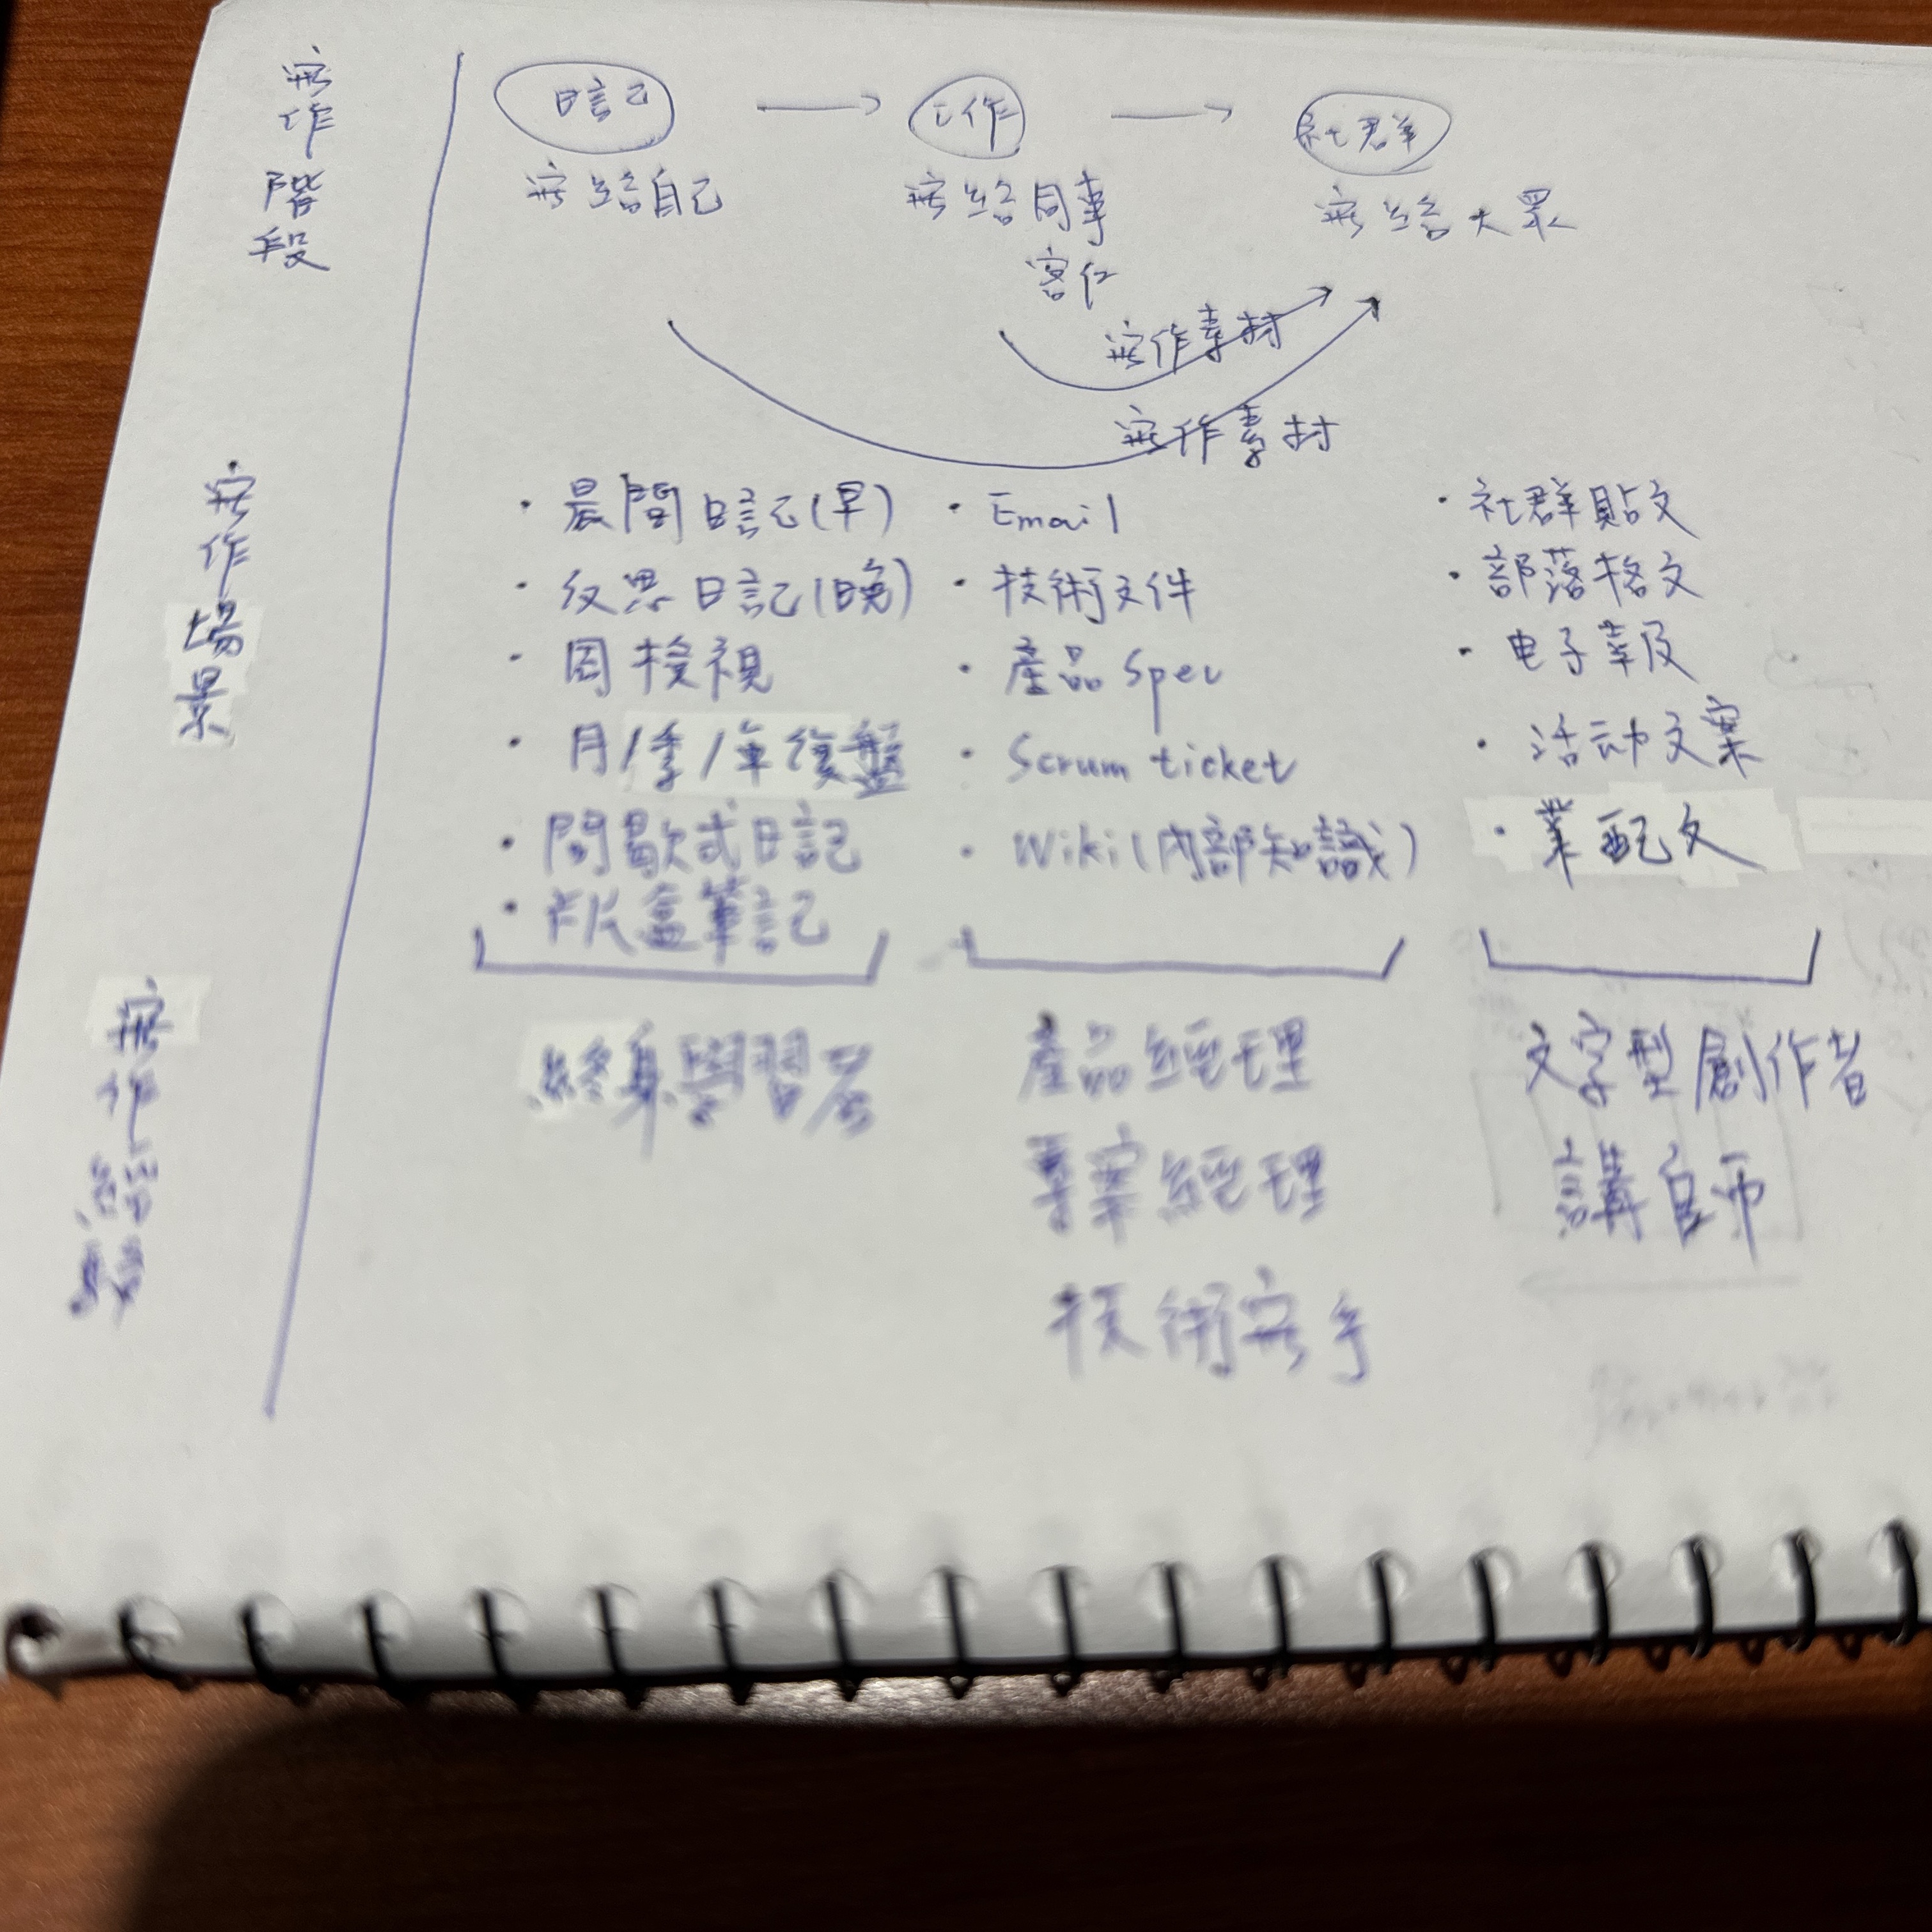 寫作階段
日記 → 工作 → 社群
寫給自己 寫給同事 寫給大眾
客户
寫作素材
寫作素材
寫作場景
・晨間日記(早)
・反思日記(晚)
・周檢視
・月/季/年復盤
・間歇式日記
・卡片盒筆記
・Email
・技術文件
・產品 Spec
・Scrum ticket
・Wiki(內部知識)
・社群貼文
・部落格文
・电子報
・活动文案
・業配文
寫作經驗
終身學習者
產品經理
專案經理
技術寫手
文字型創作者
講師